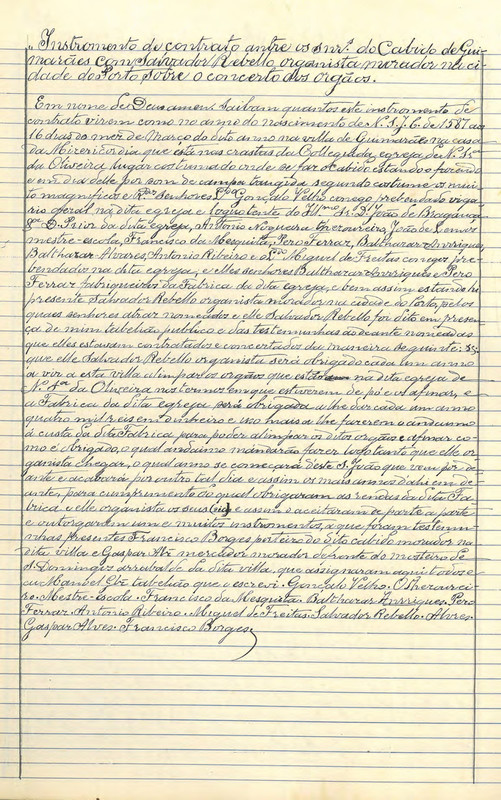 "Instromento de contrato antre os snr.s do Cabido de Gui-
marães com Salvador Rebello, organista morador na ci-
dade do Porto sobre o concerto dos orgãos.
Em nome de Deus amen. Saibam quantos este instromento de
contrato virem como no anno do nascimento de N. S. J. C. de 1587 aos
16 dias do mez de Março do dito anno na villa de Guimarães na casa
da Misericordia que está nas crastas da Collegiada egreja de N. Sr.a
da Oliveira, lugar costumado onde se faz Cabido estando o fazendo
e em dia delle por som de campa tangida segundo costume os mui-
to magnificos e R.dos Senhores Gonçalo Velho conego prebendado viga-
rio geral na dita egreja e loquotente do Ill.mo Sr. D. João de Bragança
D. Prior da dita egreja, Antonio Nogueira thezoureiro, João de
mestre-escola, Francisco da Mesquita, Pero Ferraz, Balthazar Anrriques,
Balthazar Alvares Antonio Ribeiro e Miguel de Freitas conegos pre-
bendados na dita egreja, e elles senhores Balthazar Anrriques e Pero
Ferraz fabriqueiros da Fabrica da dita egreja, e bem assim estando hi
presente Salvador Rebello organista morador na cidade do Porto, pelos
quaes senhores atraz nomeados e elle Salvador Rebello foi dito em presen-
ça de mim tabelião publico e das testemunhas ao deante nomeadas
que elles estavam contratados e concertados da maneira seguinte: ss:
que elle Salvador Rebello organista será obrigado cada um anno
a vir a esta villa alimpar os orgãos que estão na dita egreja de
N.a S.ra da Oliveira nos termos em que estiverem de pó e os afinar, e
a Fabrica da dita egreja será obrigada a lhe dar cada um anno
quatro mil reis em dinheiro e isso mais a lhe fazerem o andaimo
á custa da dita Fabrica para poder alimpar os ditos orgãos e afinar co-
mo é obrigado, o qual andaimo mandarão fazer logo tanto que elle or-
ganista chegar, o qual anno se começará deste S. João que vem por di-
ante e acabará por outro tal dia e assim os mais annos dahi em de-
ante, para cumprimento do qual obrigaram as rendas da dita Fa-
brica e elle organista os seus (sic) e assim o aceitaram de parte a parte
e outorgaram um e muitos instromentos, a que foram testemu-
nhas presentes Francisco Borges porteiro do dito cabido morador na
dita villa e Gaspar Alz mercador morador de fronte do mosteiro de
S. Domingos arrabalde da dita villa, que assignaram aqui todos e
eu Manoel tabelião que o escrevi. Gonçalo Velho. O thesourei-
ro. Mestre-escola. Francisco da Mesquita. Balthazar Anrriques. Pero
Ferraz. Antonio Ribeiro. Miguel de Freitas. Salvador Rebello. Alvres.
Gaspar Alves. Francisco Borges.